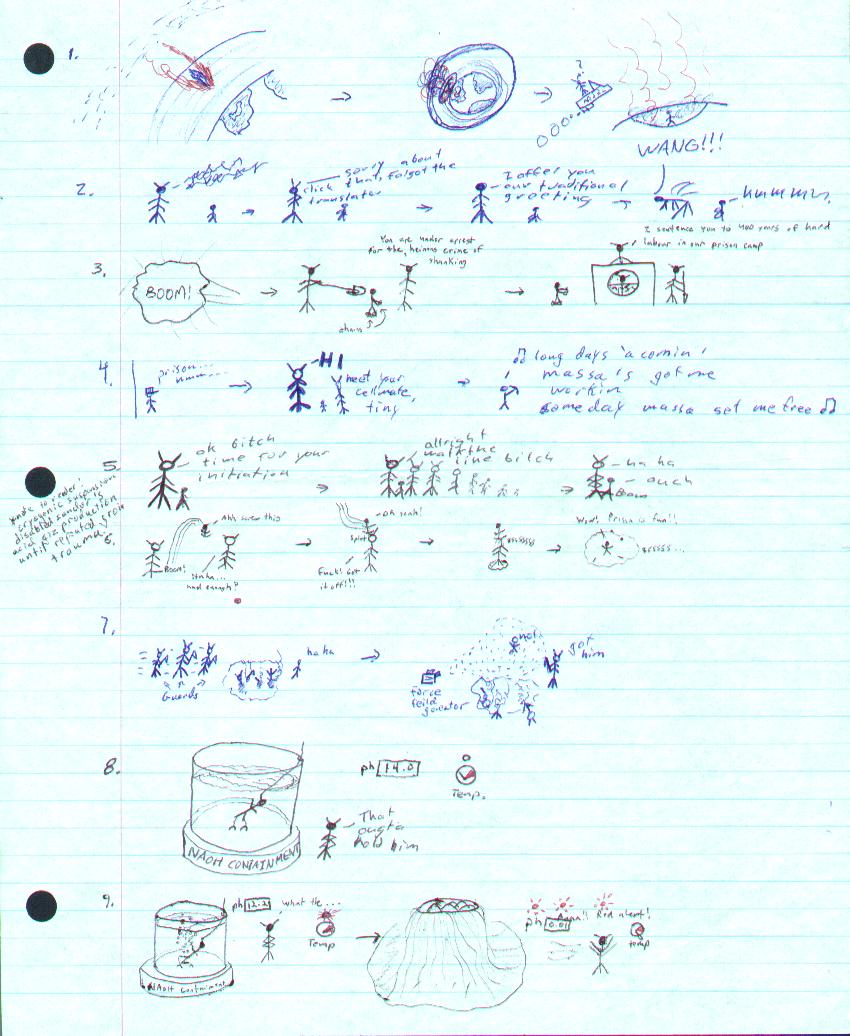 1.
?
WANG!!!
2.
sorry about
click that, forgot the
translator
I offer you
our traditional
greeting
Hmmmm.
3.
BOOM!
You are under arrest
for the heinous crime of
shunking
chains
I sentence you to 400 years of hard
labour in our prison camp
4.
prison...
hmm...
HI
meet your
cellmate,
tiny
♫ long days 'a comin'
massa's got me
workin
someday massa set me free ♫
5.
ok bitch
time for your
initiation
allright
walk the
line bitch
ha ha
ouch
Boom
note to reader:
cryogenic suspension
disabled
acid giz production
until repeated groin
trauma.
6.
Ahh screw this
Boom!
had enough?
oh yeah!
Splat
Fuck! Get
it off!!!
Wow! Prison is fun!!
7.
Guards
ha ha
force
feild
generator
got
him
8.
NAOH CONTAINMENT
ph 14.0
Temp.
That
oughta
hold him
9.
NAOH Containment
ph 12.2
what the...
Temp
ph 0.01
Red alert!
temp